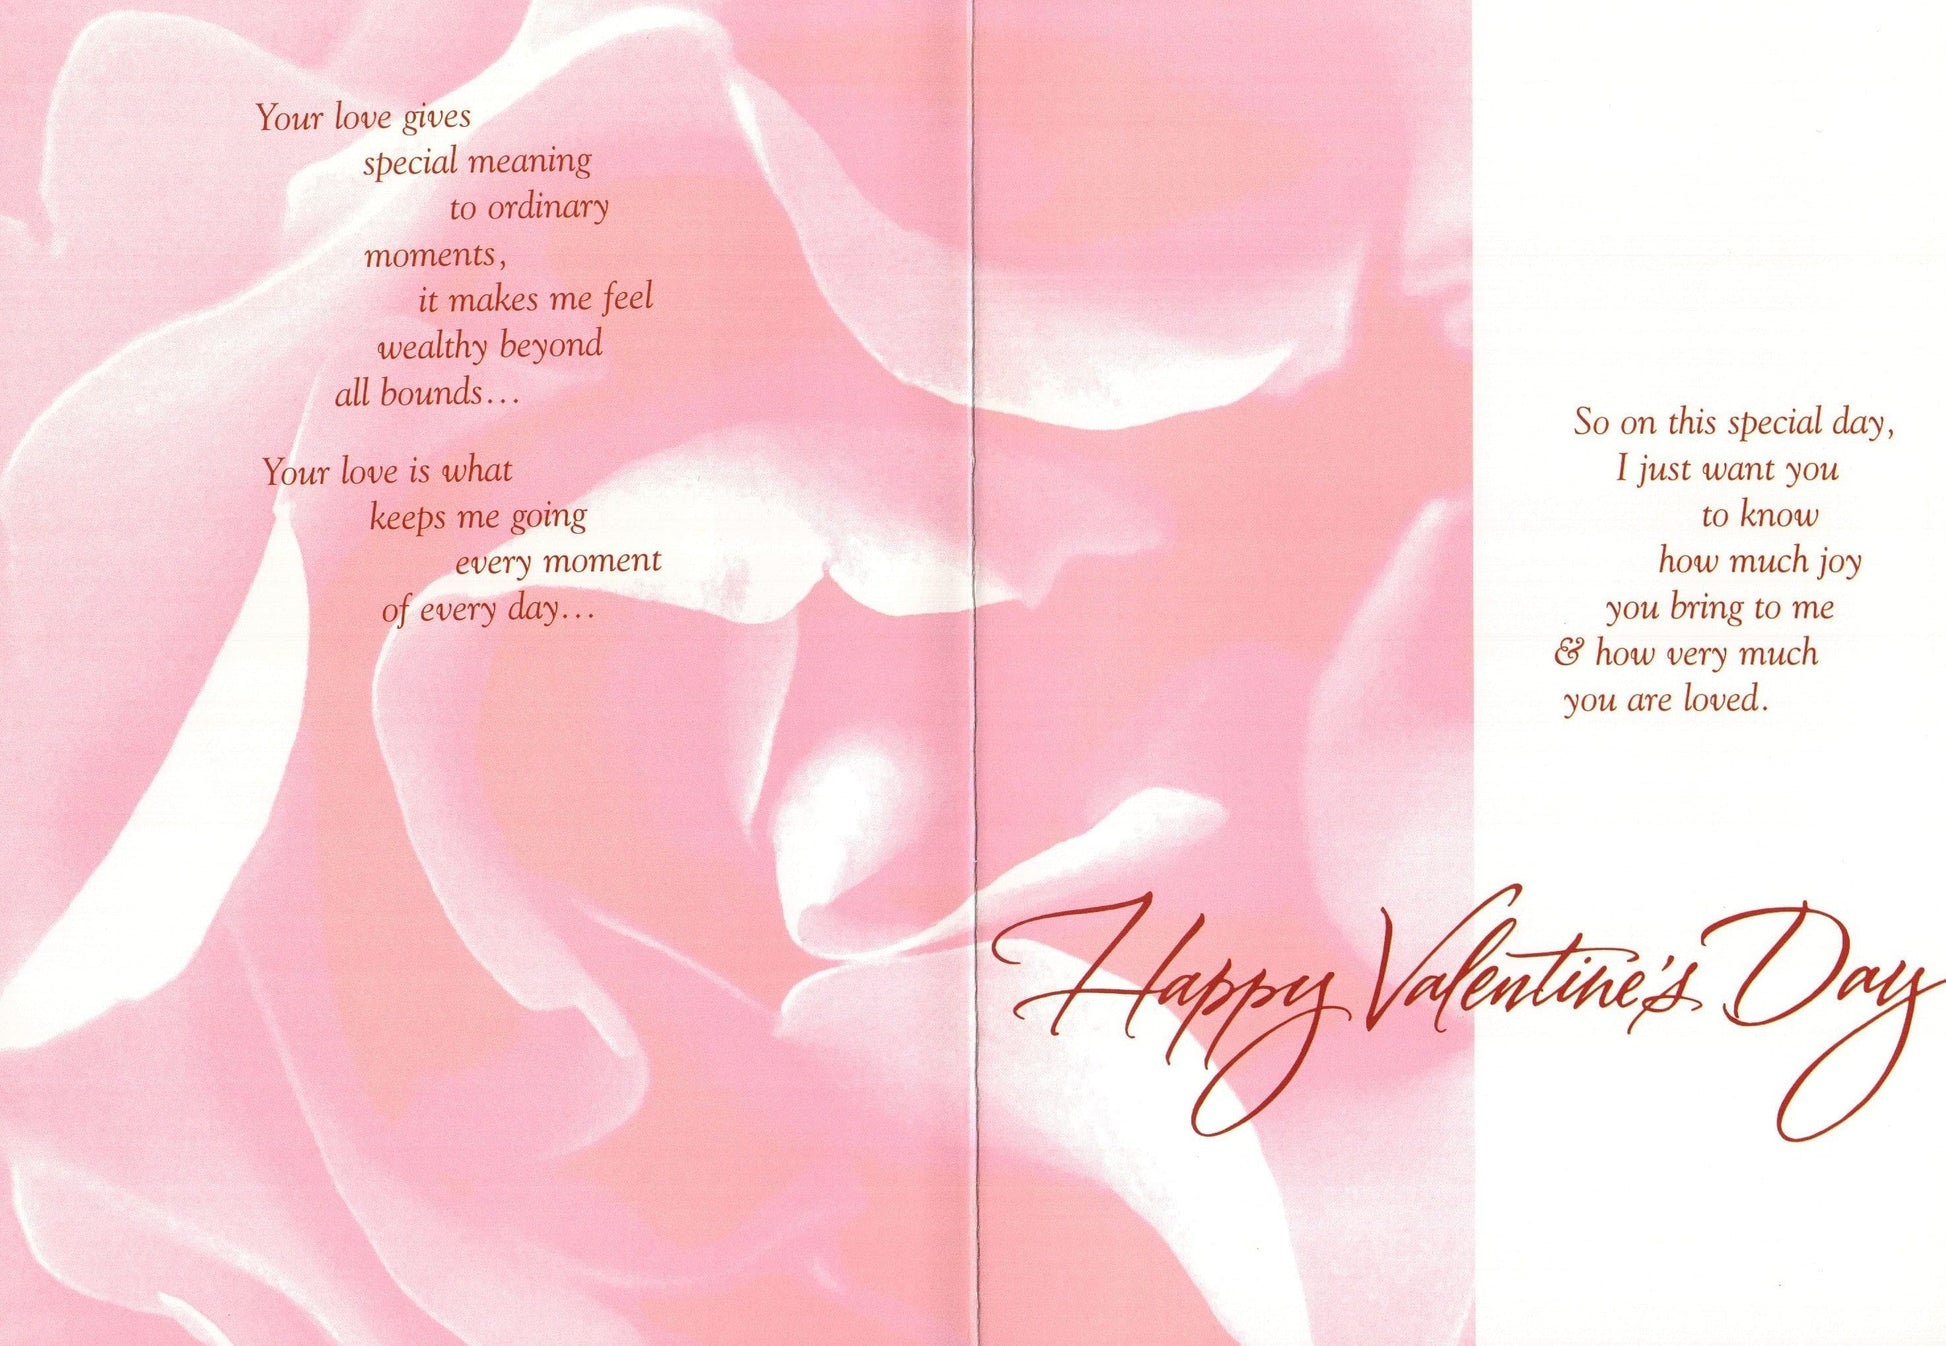 Your love gives
special meaning
to ordinary
moments,
it makes me feel
wealthy beyond
all bounds...
Your love is what
keeps me going
every moment
of every day...
So on this special day,
I just want you
to know
how much joy
you bring to me
& how very much
you are loved.
Happy Valentine's Day